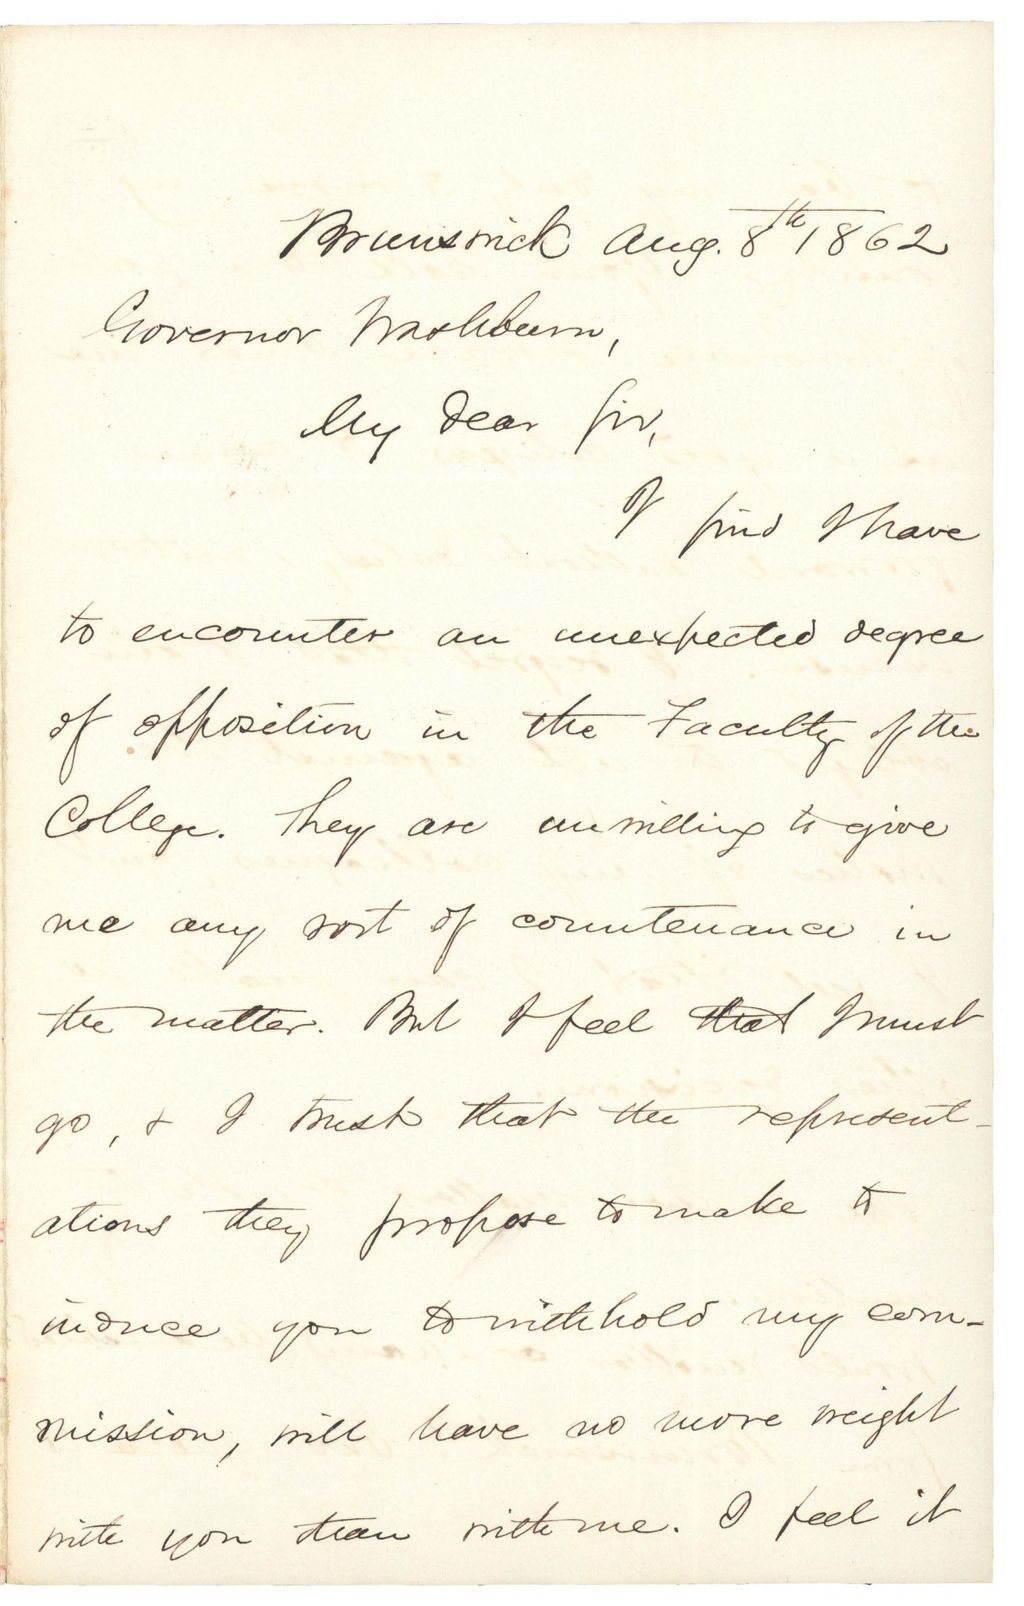 Brunswick Aug. 8th 1862
Governor Washburn,
My dear Sir,
I find I have
to encounter an unexpected degree
of opposition in the Faculty of the
College. They are unwilling to give
me any sort of countenance in
the matter. But I feel that I must
go, & I trust that the represent-
ations they propose to make to
induce you to withhold my com-
mission, will have no more weight
with you than with me. I feel it